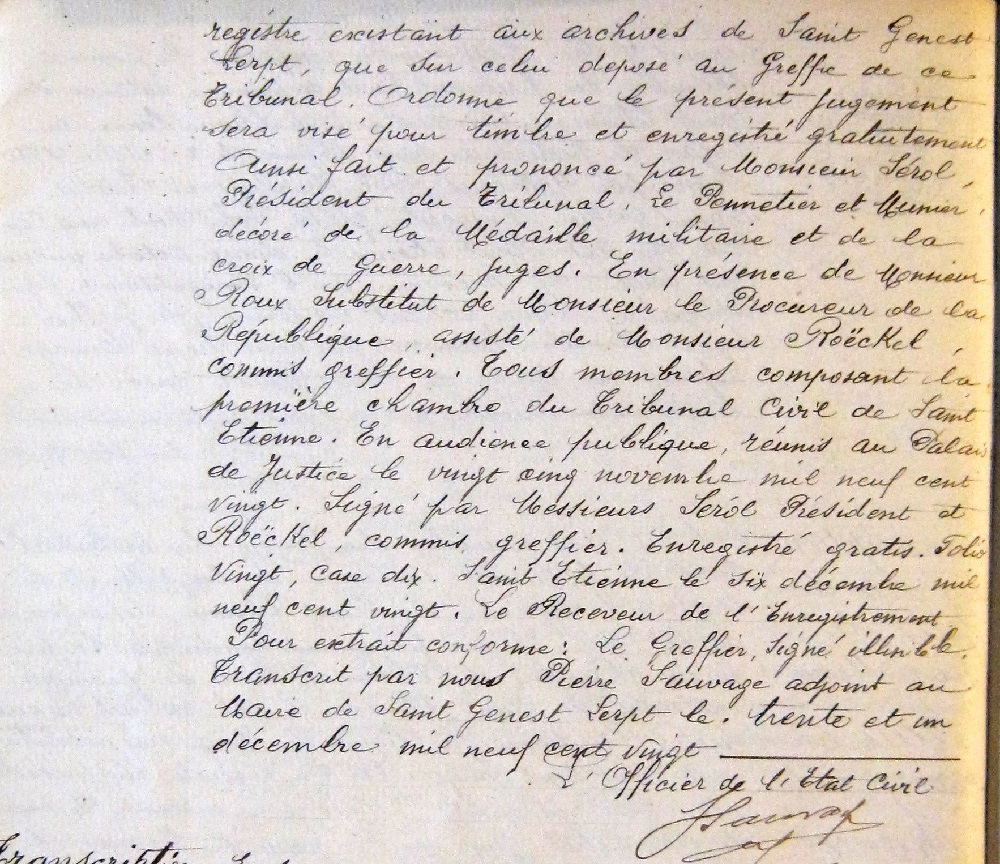 registre existant aux archives de Saint Genest
Lerpt, que sur celui déposé au Greffe de ce
Tribunal. Ordonne que le présent jugement
sera visé pour timbre et enregistré gratuitement
Ainsi fait et prononcé par Monsieur Sérol,
Président du Tribunal, Le Pennetier et Munier,
décoré de la Médaille militaire et de la
croix de Guerre, juges. En présence de Monsieur
Roux Substitut de Monsieur le Procureur de la
République assisté de Monsieur Roëckel,
commis greffier. Tous membres composant la
première chambre du Tribunal Civil de Saint
Etienne. En audience publique, réunis au Palais
de Justice le vingt cinq novembre mil neuf cent
vingt. Signé par Messieurs Sérol Président et
Roëckel commis greffier. Enregistré gratis. Folio
Vingt, case dix. Saint Etienne le six décembre mil
neuf cent vingt. Le Receveur de l'Enregistrement
Pour extrait conforme: Le Greffier, Signé illisible.
Transcrit par nous Pierre Sauvage adjoint au
Maire de Saint Genest Lerpt le. trente et un
décembre mil neuf cent vingt
L'Officier de l'Etat Civil
PSauvage
Transcription